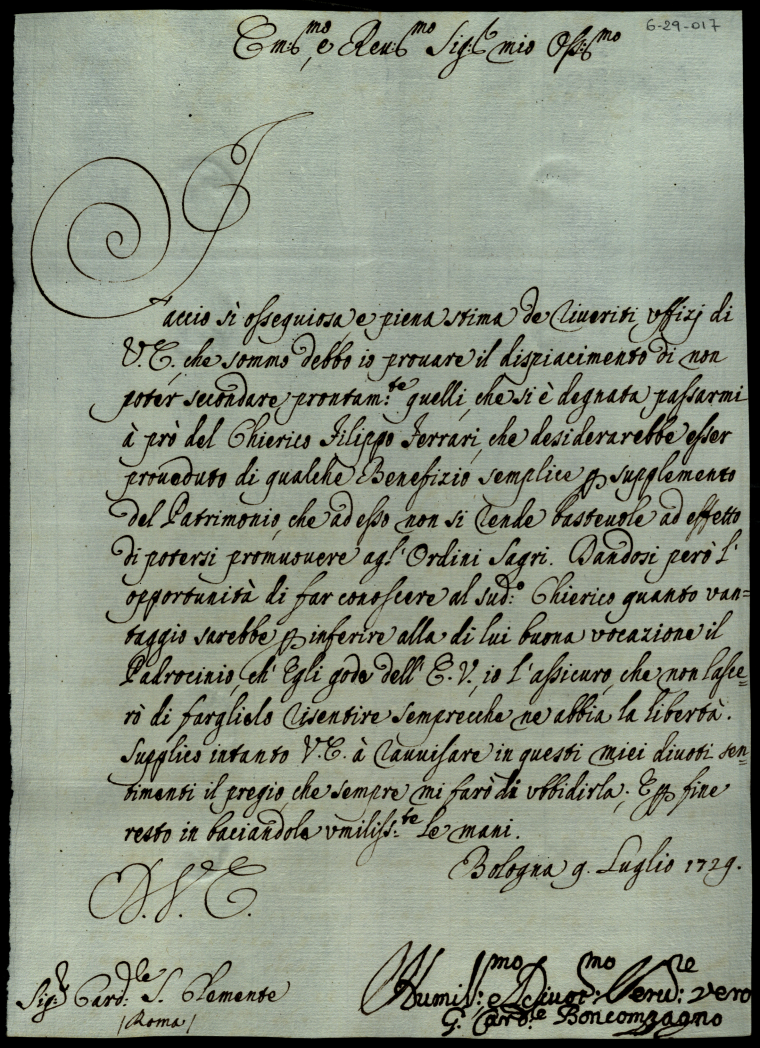 6-29-017
Em:mo e Reu:mo Sig:r mio Oss:mo
Faccio sì ossequiosa, e piena stima de riueriti vffizj di
V.E., che sommo debbo io prouare il dispiacimento di non
poter secondare prontam:te quelli, che si è degnata passarmi
à prò del Chierico Filippo Ferrari, che desiderarebbe esser
proueduto di qualche Benefizio semplice p supplemento
del Patrimonio, che adesso non si rende basteuole ad effetto
di potersi promuouere agl' Ordini Sagri. Dandosi però l'
opportunità di far conoscere al sud:o Chierico quanto van=
taggio sarebbe p inferire alla di lui buona vocazione il
Padrocinio, ch' Egli gode dell' E.V., io l'assicuro, che non lasce=
rò di farglielo risentire semprecche ne abbia la libertà.
Supplico intanto V.E. à rauuisare in questi miei diuoti sen=
timenti il pregio, che sempre mi farò di vbbidirla; E p fine
resto in baciandole vmiliss:te le mani.
Bologna 9. Luglio 1729.
D. V. E.
Sig:r Card:le S. Clemente
/Roma/
Humil:mo e Diuot:mo Seru:re vero
G. Card:le Boncompagno